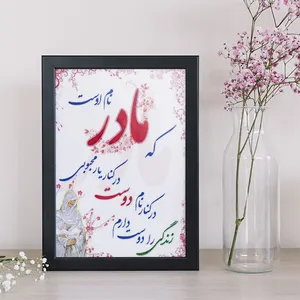 نام اوست
مادر
که
در کنار یار محبوبی
در کنار نام دوست
زندگی را دوست دارم